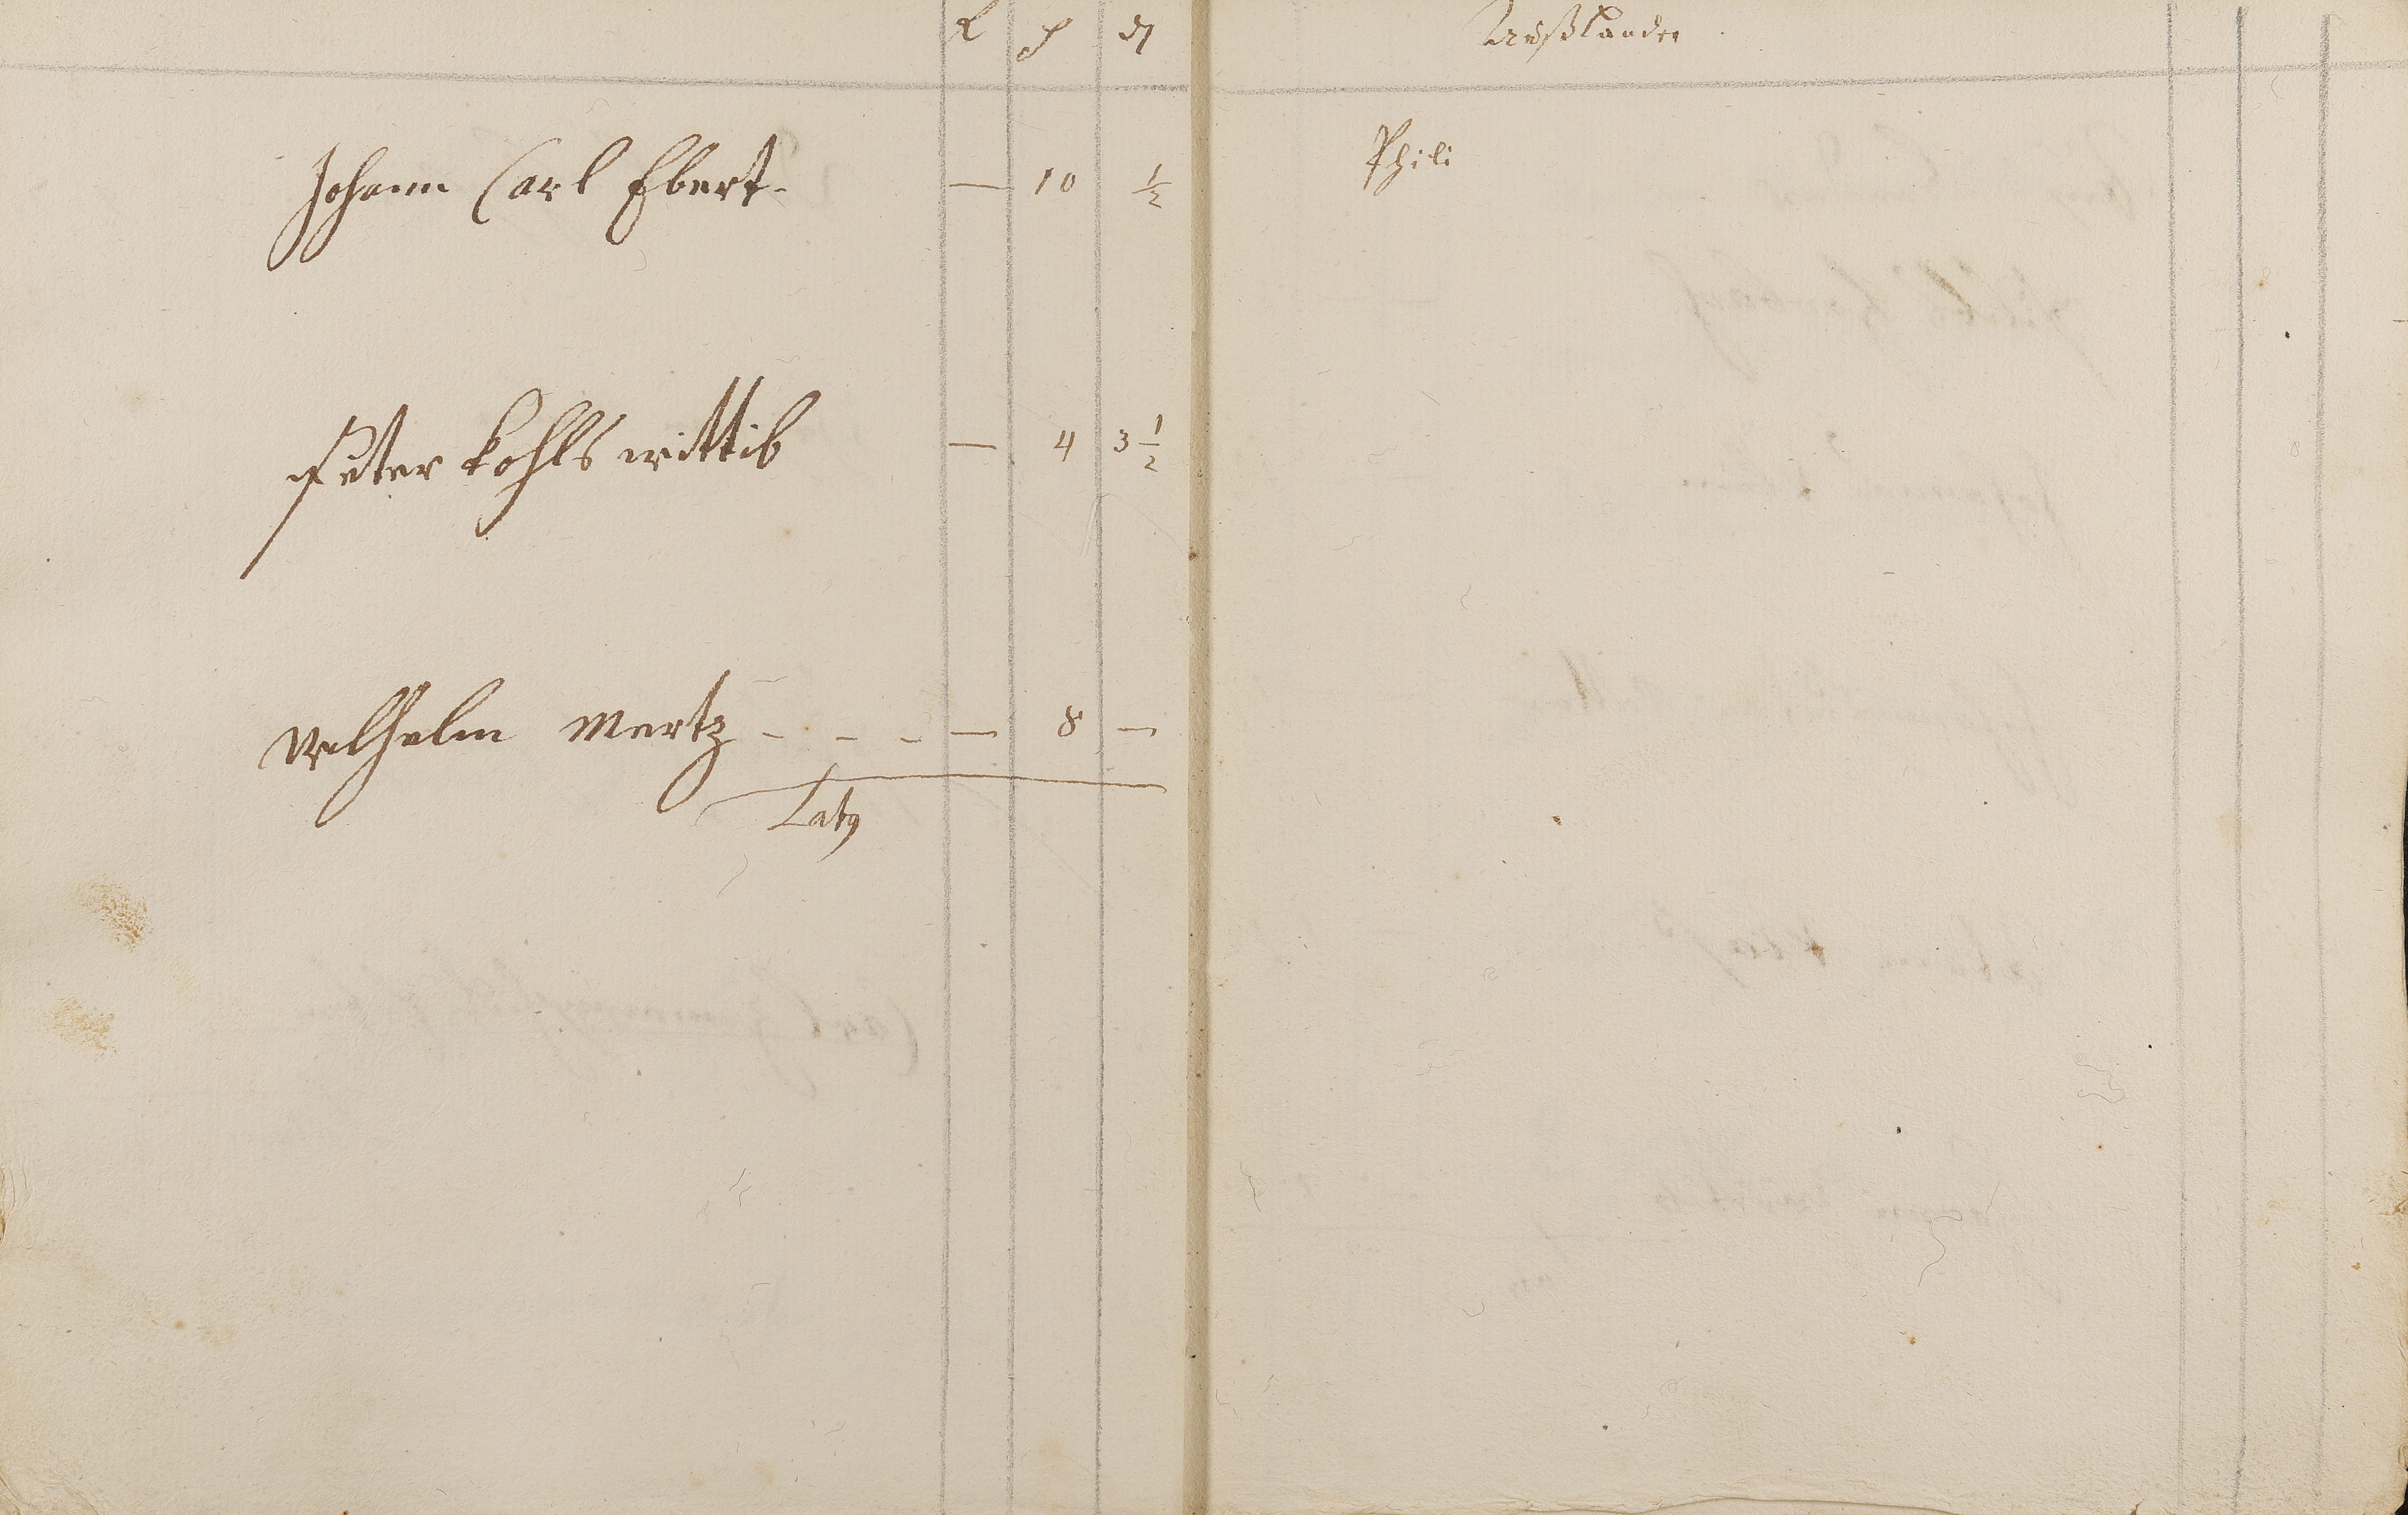 R ß ₰
Johann Carl Ebert - — 10 ½
Peter Kohls wittib — 4 3½
Wilhelm Mertz - - - - — 8 —
Latq
Ausländer
Phili